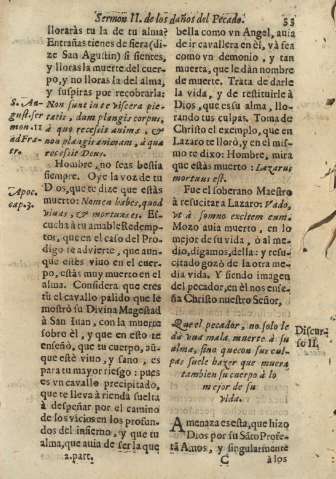 Sermon II. de los daños del Pecado. 53
lloraràs tu la de tu alma?
Entrañas tienes de fiera (di-
ze San Agustin) si sientes,
y lloras la muerte del cuer-
po, y no lloras la del alma,
y suspiras por recobrarla:
Non sunt in te viscera pie-
tatis, dam plangis corpus,
à quo recessit anima, &
non plangis animam, à qua
recessit Deus.
Hombre, no seas bestia
siempre. Oye la voz de tu
Dios, que te dize que estàs
muerto: Nomen habes, quod
vivas, & mortuus es. Es-
cucha à tu amable Redemp-
tor, que en el caso del Pro-
digo te advierte, que aun-
que estès vivo en el cuer-
po, estàs muy muerto en el
alma. Considera que eres
tu el cavallo palido que le
mostrò su Divina Magestad
à San Iuan, con la muerta
sobre èl, y que en esto te
enseñò, que tu cuerpo, aũ-
que estè vivo, y sano, es
para tu mayor riesgo: pues
es vn cavallo precipitado,
que te lleva à rienda suelta
à despeñar por el camino
de los vicios en los profun-
dos del infierno, y que tu
alma, que avia de ser la que
2. part.
S. Au-
gust. ser
mon. 11
ad Fra-
tr.
Apoc.
cap. 3.
bella como vn Angel, avia
de ir cavallera en èl, và fea
como vn demonio, y tan
muerta, que le dàn nombre
de muerte. Trata de darle
la vida, y de restituirle à
Dios, que es su alma, llo-
rando tus culpas. Toma de
Christo el exemplo, que en
Lazaro te llorò, y en el mis-
mo te dixo: Hombre, mira
que estàs muerto: Lazarus
mortuus est.
Fue el soberano Maestro
à resucitar a Lazaro: Vado,
vt à somno excitem eum.
Mozo avia muerto, en lo
mejor de su vida, ò al me-
dio, digamos, della: y resu-
citado gozò de la otra me-
dia vida. Y siendo imagen
del pecador, en èl nos ense-
ña Christo nuestro Señor,
Que el pecador, no solo le
dà una mala muerte à su
alma, sino que con sus cul-
pas suele hazer que muera
tambien su cuerpo à lo
mejor de su
vida.
Discur-
so II.
Amenaza es esta, que hizo
Dios por su Sãto Profe-
ta Amos, y singularmente
C à los